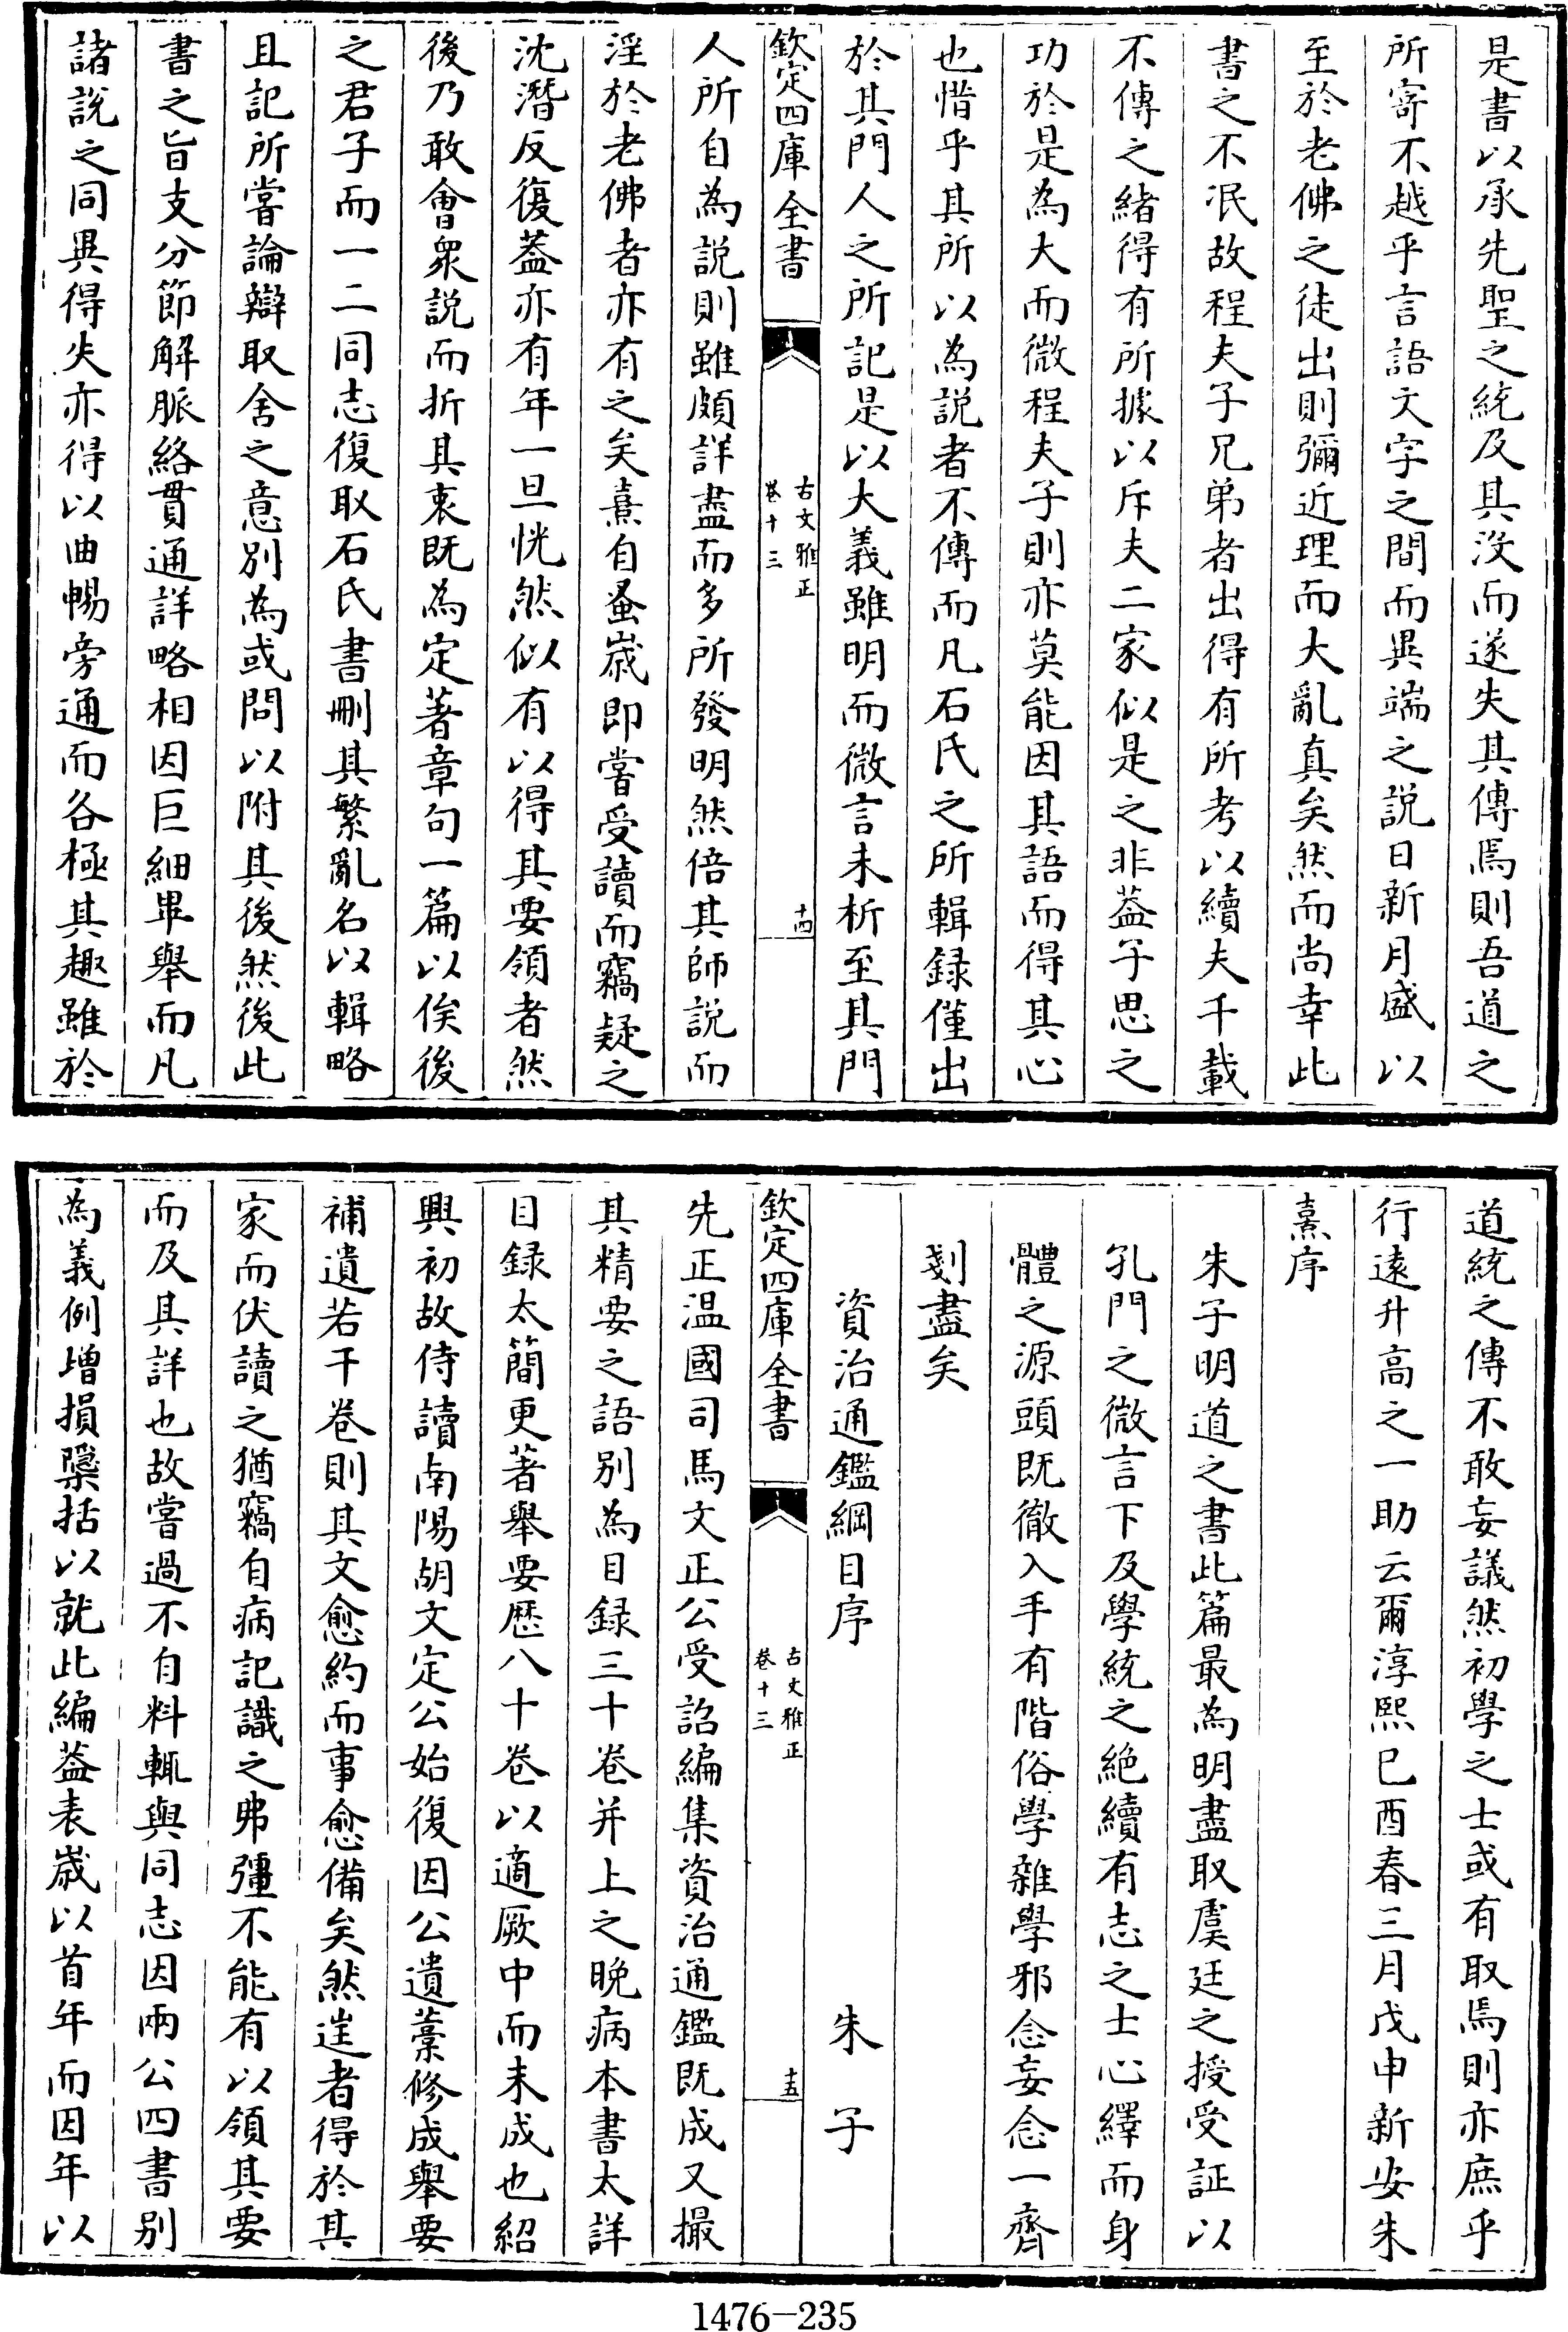 是書以承先聖之統及其沒而遂失其傳焉則吾道之
所寄不越乎言語文字之間而異端之説日新月盛以
至於老佛之徒出則彌近理而大亂真矣然而尚幸此
書之不泯故程夫子兄弟者出得有所考以續夫千載
不傳之緒得有所據以斥夫二家似是之非葢子思之
功於是為大而微程夫子則亦莫能因其語而得其心
也惜乎其所以為説者不傳而凡石氏之所輯録僅出
於其門人之所記是以大義雖明而微言未析至其門
欽定四庫全書
古文雅正
卷十三
十四
人所自為説則雖頗詳盡而多所發明然倍其師説而
淫於老佛者亦有之矣熹自蚤嵗即嘗受讀而竊疑之
沈潛反復葢亦有年一旦恍然似有以得其要領者然
後乃敢會衆説而折其衷既為定著章句一篇以俟後
之君子而一二同志復取石氏書刪其繁亂名以輯略
且記所嘗論辯取舍之意別為或問以附其後然後此
書之旨支分節解脈絡貫通詳略相因巨細畢舉而凡
諸説之同異得失亦得以曲暢旁通而各極其趣雖於
道統之傳不敢妄議然初學之士或有取焉則亦庶乎
行遠升高之一助云爾淳熙己酉春三月戊申新安朱
熹序
朱子明道之書此篇最為明盡取虞廷之授受証以
孔門之微言下及學統之絶續有志之士心繹而身
體之源頭既徹入手有階俗學雜學邪念妄念一齊
剗盡矣
資治通鑑綱目序
朱子
欽定四庫全書
古文雅正
卷十三
十五
先正温國司馬文正公受詔編集資治通鑑既成又撮
其精要之語別為目録三十卷并上之晚病本書太詳
目録太簡更著舉要歴八十卷以適厥中而未成也紹
興初故侍讀南陽胡文定公始復因公遺藁修成舉要
補遺若干卷則其文愈約而事愈備矣然逆者得於其
家而伏讀之猶竊自病記識之弗彊不能有以領其要
而及其詳也故嘗過不自料輒與同志因兩公四書别
為義例増損櫽括以就此編葢表嵗以首年而因年以
1476-235